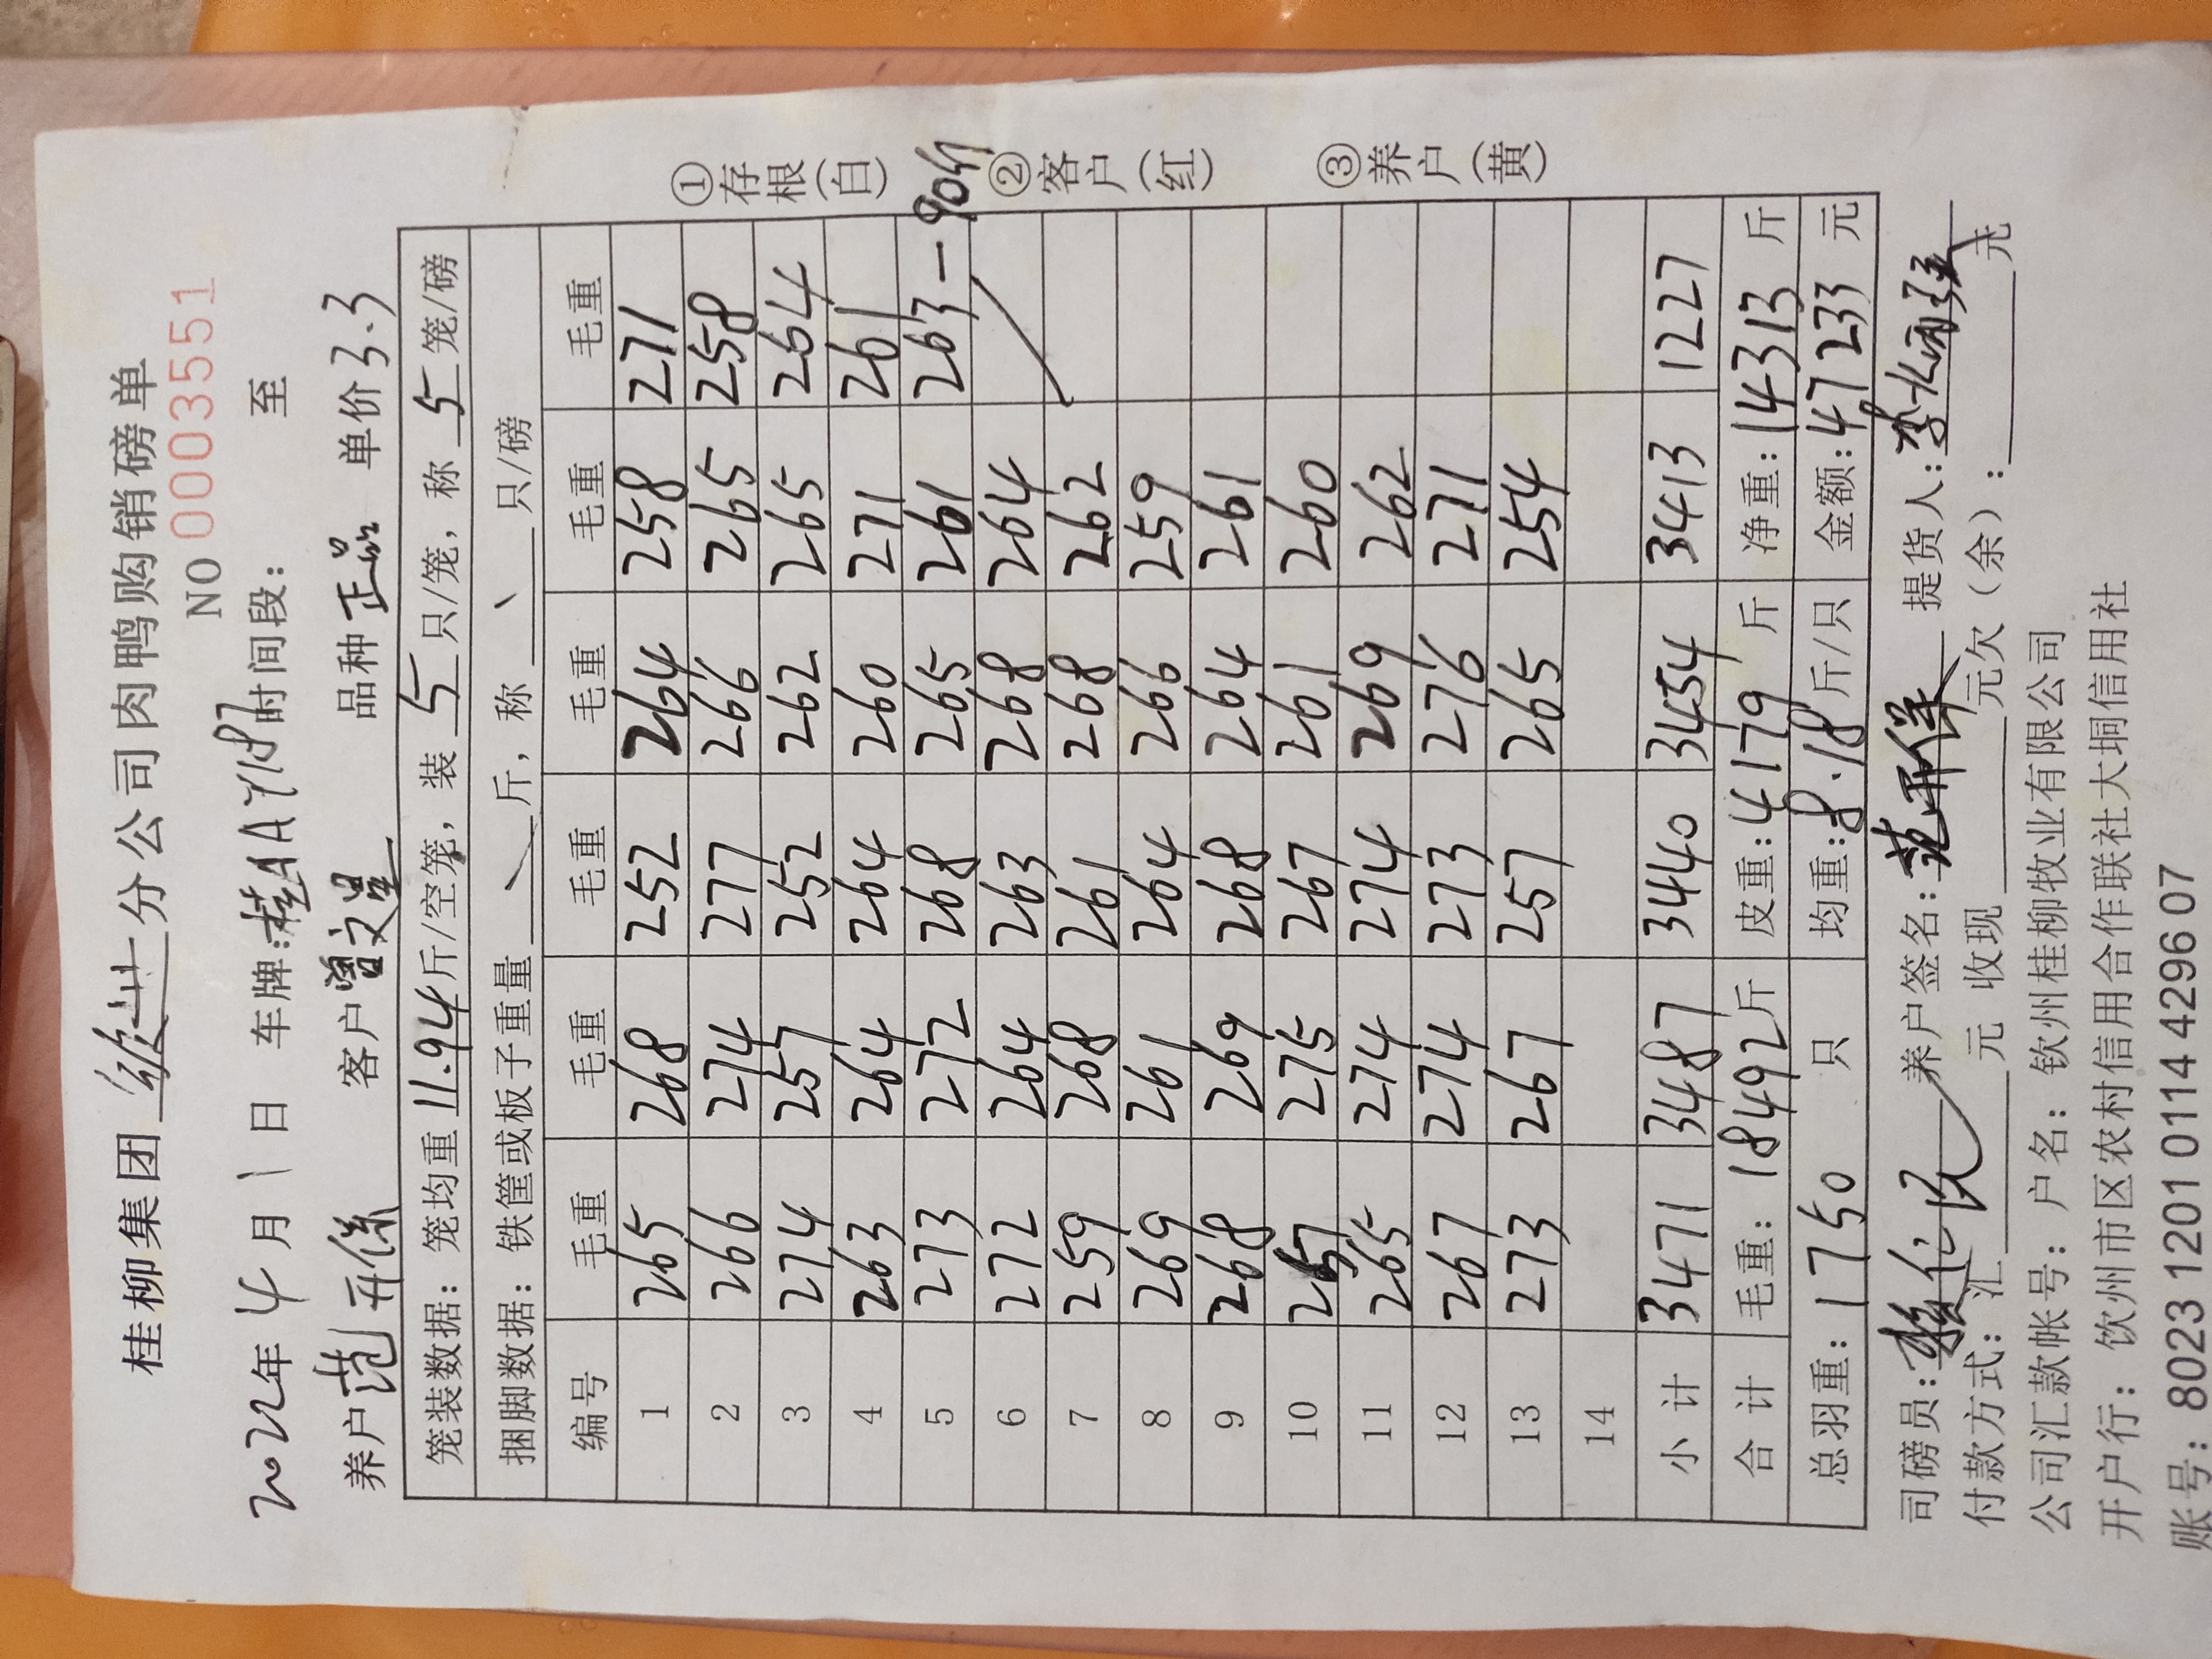 桂柳集团 分公司肉鸭购销磅单
NO 0003551
2022年4月1日 车牌:桂A 时间段: 至
养户 范开 客户 曾文星 品种 正品 单价 3.3
笼装数据: 笼均重 11.94 斤/空笼, 装 5 只/笼, 称 5 笼/磅
捆脚数据: 铁筐或板子重量 \ 斤, 称 \ 只/磅
编号 毛重 毛重 毛重 毛重 毛重 毛重
1 265 268 252 264 258 271
2 266 274 277 266 265 258
3 274 257 252 262 265 264
4 263 264 264 260 271 261
5 273 272 268 265 261 263 -90斤
6 272 264 263 268 264
7 259 268 261 268 262
8 269 261 264 266 259
9 268 269 268 264 261
10 257 275 267 261 260
11 265 274 274 269 262
12 267 274 273 276 271
13 273 267 257 265 254
14
小计 3471 3487 3440 3454 3413 1227
合计 毛重: 18492斤 皮重: 4179 斤 净重: 14313 斤
总羽重: 1750 只 均重: 8.18 斤/只 金额: 47233 元
司磅员: 养户签名: 范开 提货人: 李
付款方式: 汇 元 收现 元欠(余): 元
公司汇款帐号: 户名: 钦州桂柳牧业有限公司
开户行: 钦州市区农村信用合作联社大垌信用社
账号: 8023 1201 0114 4296 07
①存根(白)
②客户(红)
③养户(黄)